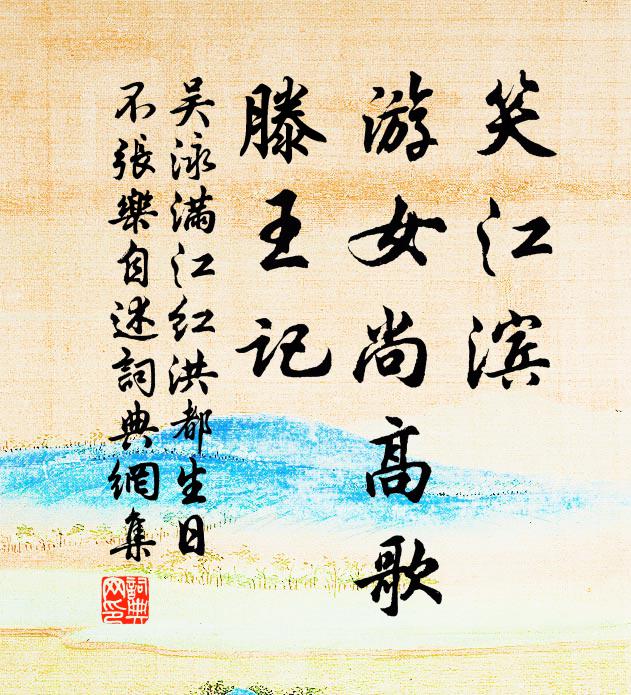 笑江滨
游女尚高歌
滕王记
吴泳满江红洪都生日
不張樂自述詞典網集
詞典